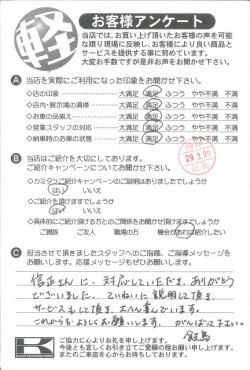 軽
お客様アンケート
当店では、お買い上げ頂いたお客様の声を可能
な限り現場に反映し、お客様により良い商品と
サービスを提供する事に努めています。
大変お手数ですが是非お声をお聞かせ下さい。
A 当店を実際にご利用になった印象をお聞かせ下さい。
◇店の印象 大満足 満足 ふつう やや不満 不満
◇店内・展示場の清掃 大満足 満足 ふつう やや不満 不満
◇お車の品揃え 大満足 満足 ふつう やや不満 不満
◇営業スタッフの対応 大満足 満足 ふつう やや不満 不満
◇納車時のお車の状態 大満足 満足 ふつう やや不満 不満
B 当店はご紹介を大切にしております。
ご紹介キャンペーンについてお聞かせ下さい。
◇カミタケご紹介キャンペーンのご説明はありましたでしょうか
はい いいえ
◇ご紹介を頂けますでしょうか
はい いいえ
◇具体的にご紹介頂ける方とのご関係をお聞かせ頂けますでしょうか
ご親族 ご友人 職場の方 機会があれば紹介したい
C 担当させて頂きましたスタッフへのご指摘、ご指導メッセージを
お願いします。応援メッセージもぜひお願いします。
対応していただき、ありがとう
ございました。ていねいに説明して頂き、
サービスもして頂き、大へん喜んでいます。
これからもよろしくお願いします。がんばって下さい。
K
ご協力に心よりお礼を申し上げます。
今後とも宜しくお引き立てご愛顧の程お願い申し上げます。
またのご来店を心からお待ちしております。